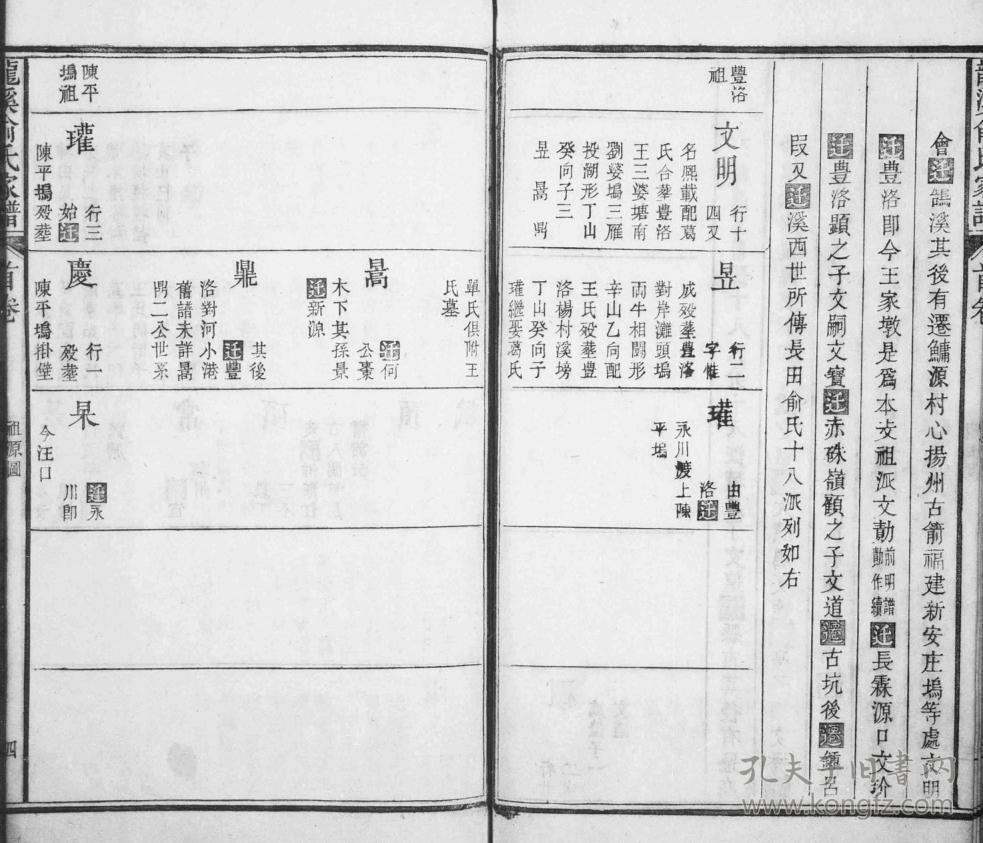 會迁鵠溪其後有遷鱅源村心揚州古箭福建新安庄塢等處文明
迁豊洛即今王家墩是爲本支祖派文動前明譜動作續迁長霖源口文玠
迁豊洛顯之子文嗣文寳迁赤硃嶺顧之子文道遷古坑後遷鍾呂
叚又迁溪西世所傳長田俞氏十八派列如右
豐洛
祖
文明
行十
四又
名熈載配葛
氏合塟豊洛
王三婆塘南
劉婆塢三雁
投湖形丁山
癸向子三
昱 暠
昱
行二
字惟
成殁塟豊洛
對岸灘頭塢
両牛相鬪形
辛山乙向配
王氏殁塟豊
洛楊村溪塝
丁山癸向子
瓘繼娶葛氏
瓘
由豐
洛迁
永川渡上陳
平塢
龍溪俞氏家譜
首卷
單氏俱附王
氏墓
暠
迁何
公棗
木下其孫景
迁新源
鼎
其後
迁豐
洛對河小港
舊譜未詳暠
二公世系
陳平
塢祖
瓘
行三
始迁
陳平塢殁塟
慶
行一
殁塟
陳平塢掛壁
杲
迁永
川即
今汪口
龍溪俞氏家譜
首卷
祖源圖
四
孔夫子旧书网
www.kongfz.com